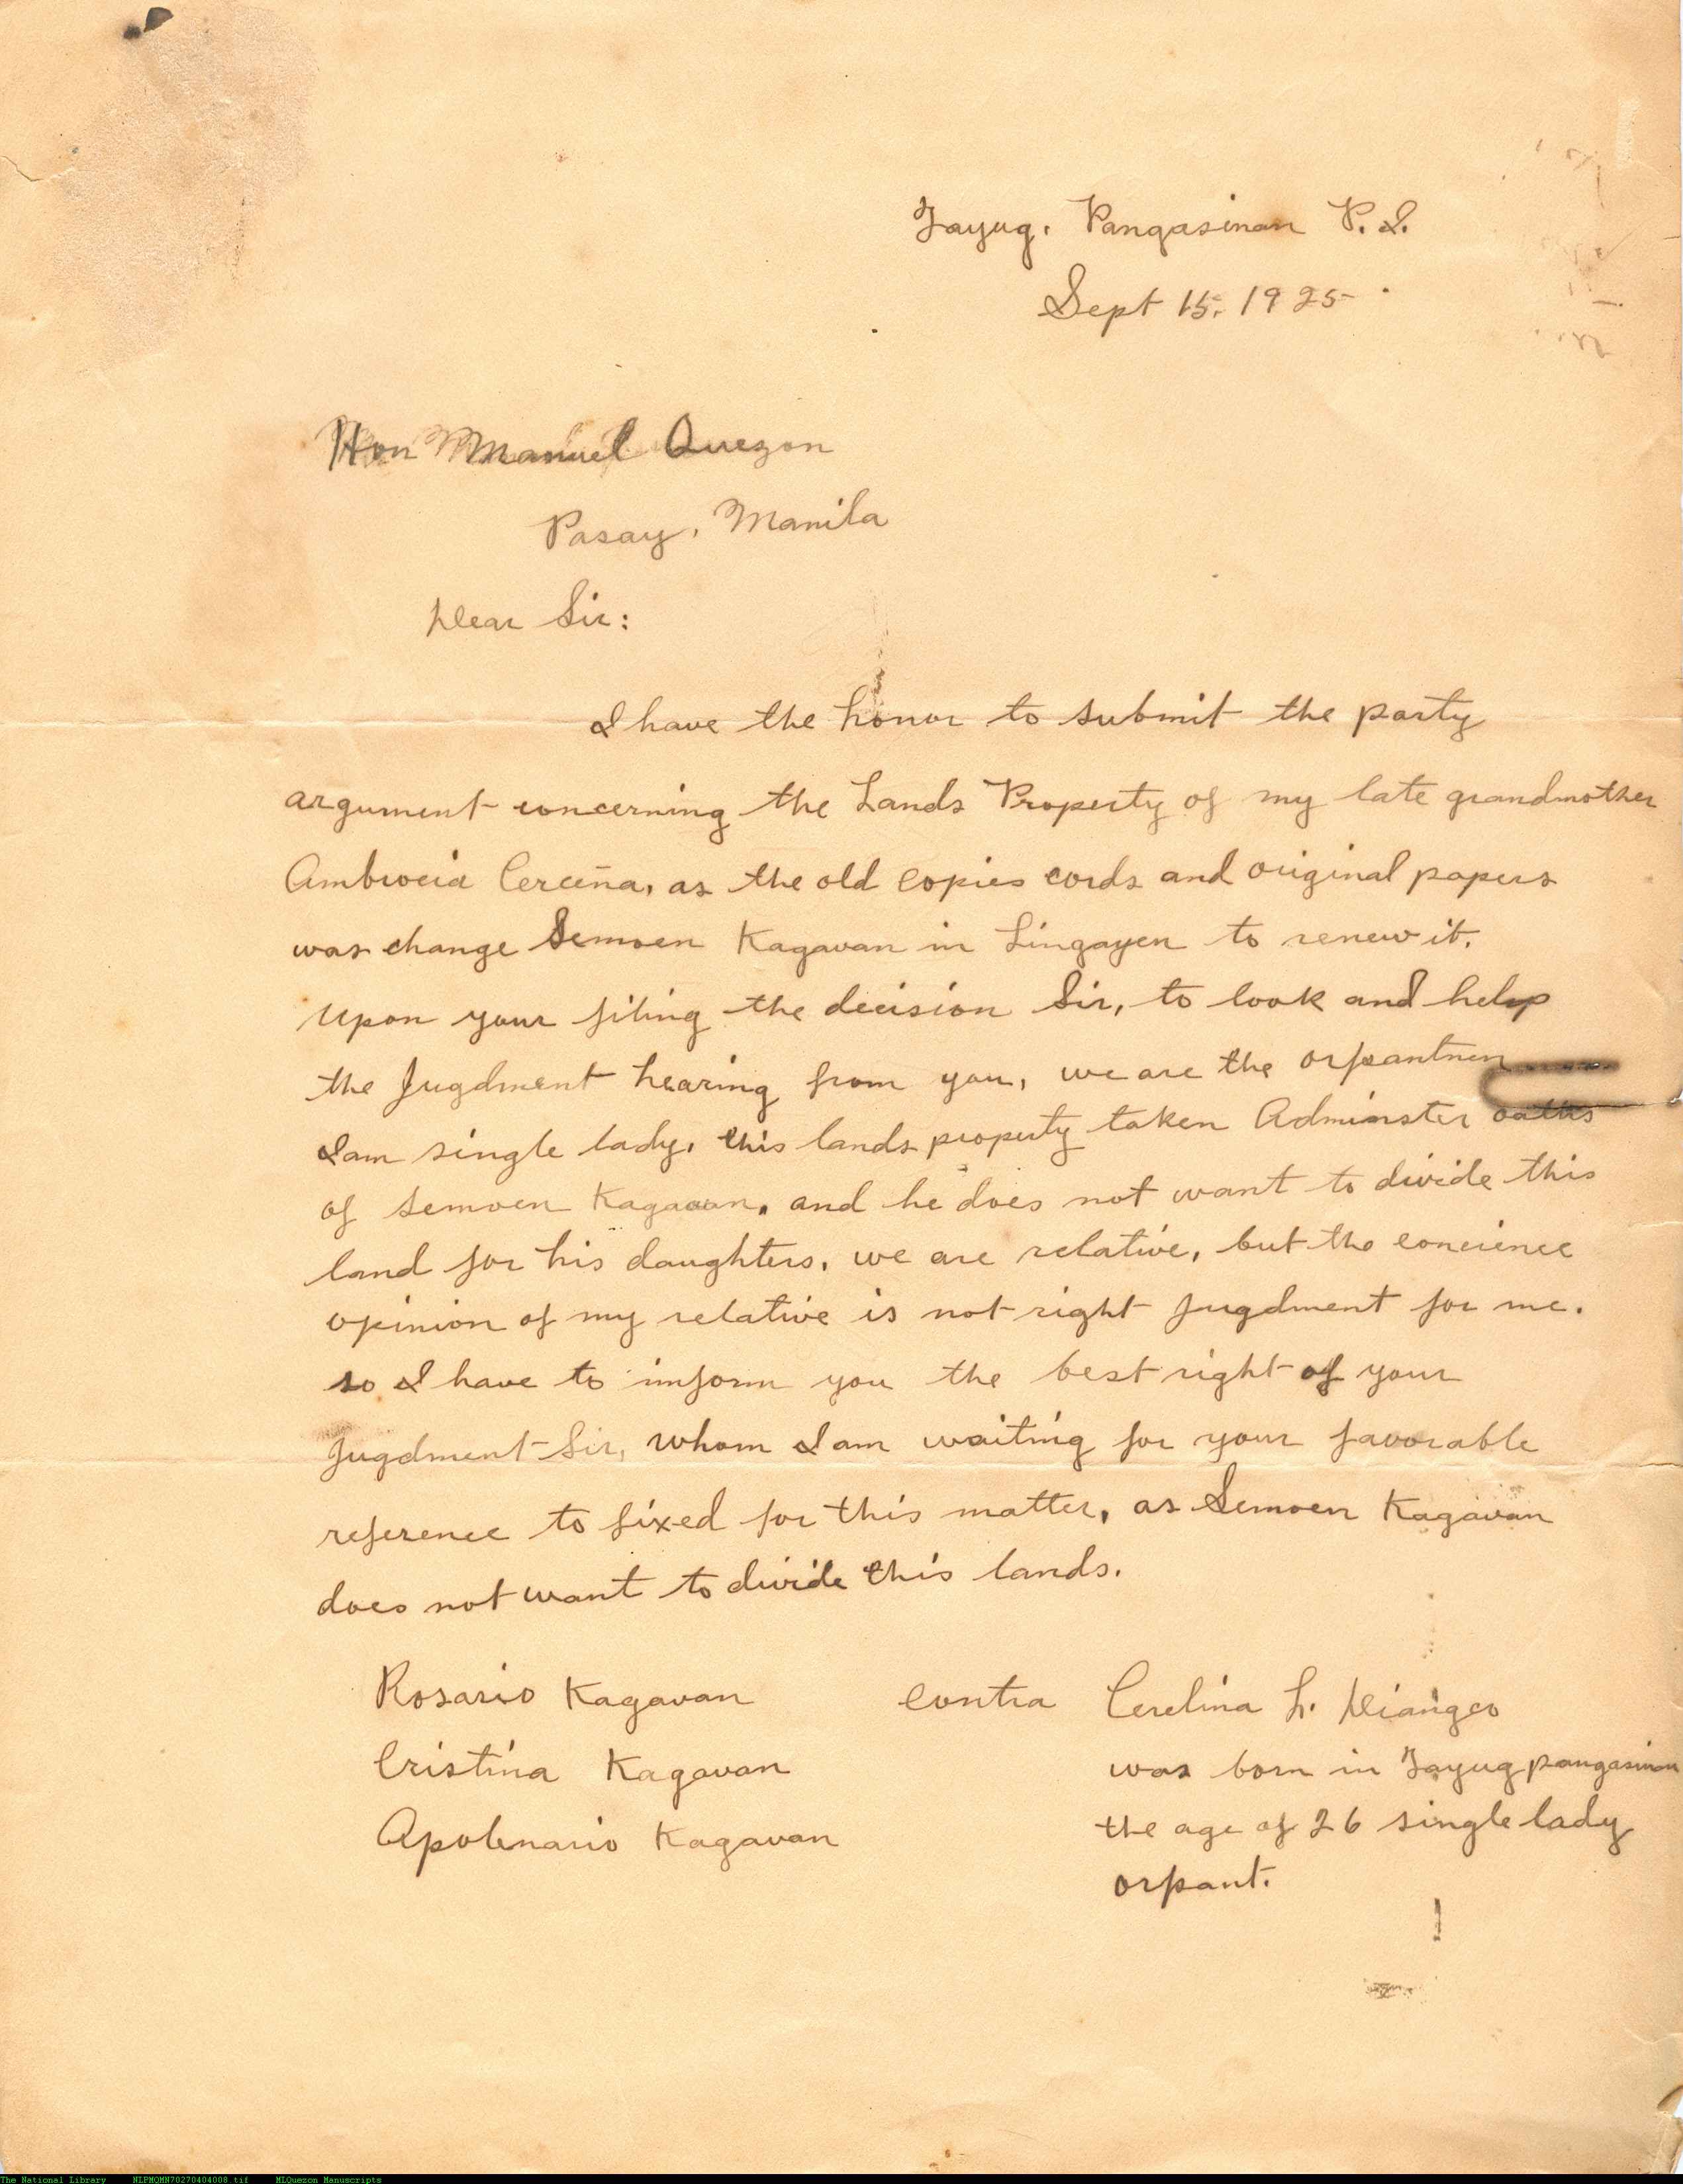 Tayug, Pangasinan P. I.
Sept 15, 1925
Hon Manuel Quezon
Pasay, Manila
Dear Sir:
I have the honor to submit the party
argument concerning the Lands Property of my late grandmother
Ambrocia Cerceña, as the old copies cords and original papers
was change Semoen Kagavan in Lingayen to renew it.
Upon your filing the decision Sir, to look and help
the Jugdment hearing from you, we are the orpantmen
I am single lady, this lands property taken Adminster oaths
of Semoen Kagavan, and he does not want to divide this
land for his daughters, we are relative, but the concience
opinion of my relative is not right Jugdment for me.
so I have to inform you the best right of your
Jugdment Sir, whom I am waiting for your favorable
reference to fixed for this matter, as Semoen Kagavan
does not want to divide this lands.
Rosario Kagavan contra Cerelina L.
Cristina Kagavan was born in Tayug pangasinan
Apolenario Kagavan the age of 26 single lady
orpant.
The National Library NLPMQMN70270404008.tif MLQuezon Manuscripts